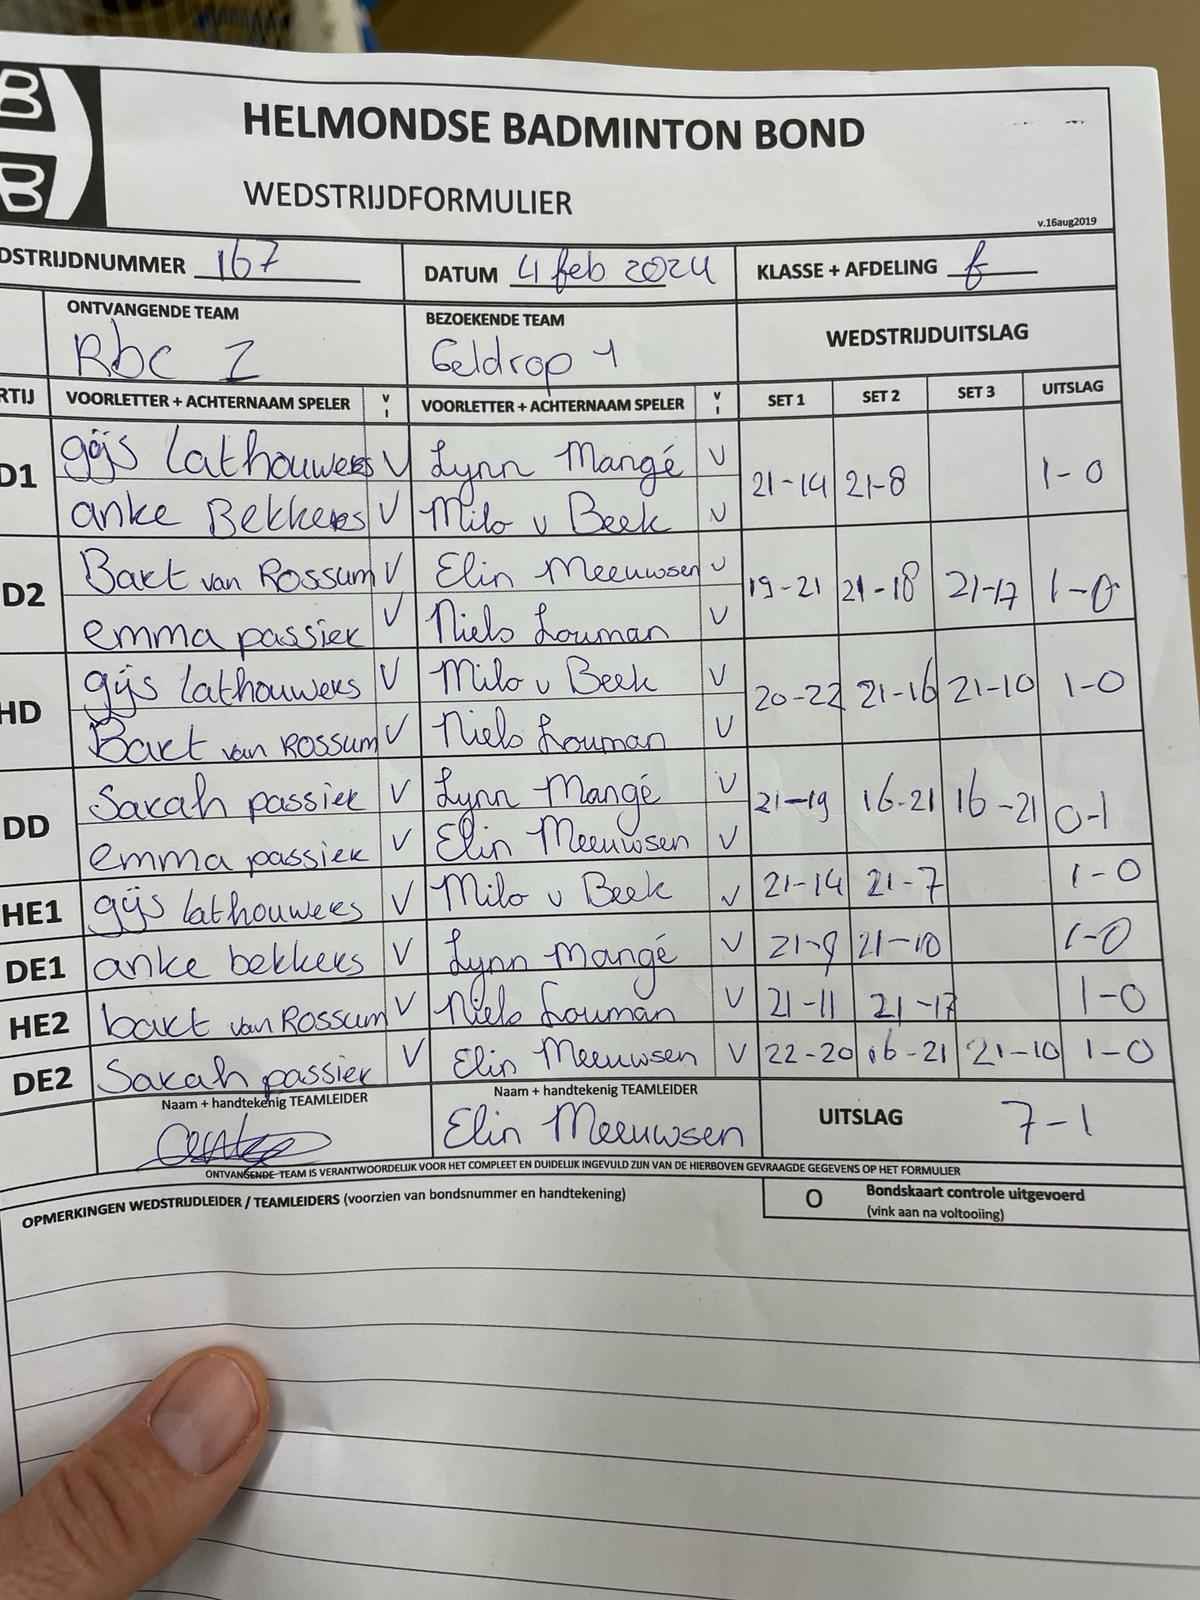 B
B
HELMONDSE BADMINTON BOND
WEDSTRIJDFORMULIER
v.16aug2019
DSTRIJDNUMMER 167 DATUM 4 feb 2024 KLASSE + AFDELING f
ONTVANGENDE TEAM BEZOEKENDE TEAM WEDSTRIJDUITSLAG
Rbc 1 Geldrop 1
RTIJ VOORLETTER + ACHTERNAAM SPELER V I VOORLETTER + ACHTERNAAM SPELER V I SET 1 SET 2 SET 3 UITSLAG
D1 gijs Lathouwers V Lynn Mangé V 21-14 21-8 1-0
anke Bekkers V Milo v Beek V
D2 Bart van Rossum V Elin Meeuwsen V 19-21 21-18 21-17 1-0
emma passier V Niels Louman V
HD gijs lathouwers V Milo v Beek V 20-22 21-16 21-10 1-0
Bart van Rossum V Niels Louman V
DD Sarah passier V Lynn Mangé V 21-19 16-21 16-21 0-1
emma passier V Elin Meeuwsen V
HE1 gijs lathouwers V Milo v Beek V 21-14 21-7 1-0
DE1 anke bekkers V Lynn Mangé V 21-9 21-10 1-0
HE2 bart van Rossum V Niels Louman V 21-11 21-17 1-0
DE2 Sarah passier V Elin Meeuwsen V 22-20 16-21 21-10 1-0
Naam + handtekenig TEAMLEIDER Naam + handtekenig TEAMLEIDER UITSLAG 7-1
Elin Meeuwsen
ONTVANGENDE TEAM IS VERANTWOORDELIJK VOOR HET COMPLEET EN DUIDELIJK INGEVULD ZIJN VAN DE HIERBOVEN GEVRAAGDE GEGEVENS OP HET FORMULIER
OPMERKINGEN WEDSTRIJDLEIDER / TEAMLEIDERS (voorzien van bondsnummer en handtekening) O Bondskaart controle uitgevoerd
(vink aan na voltooiing)